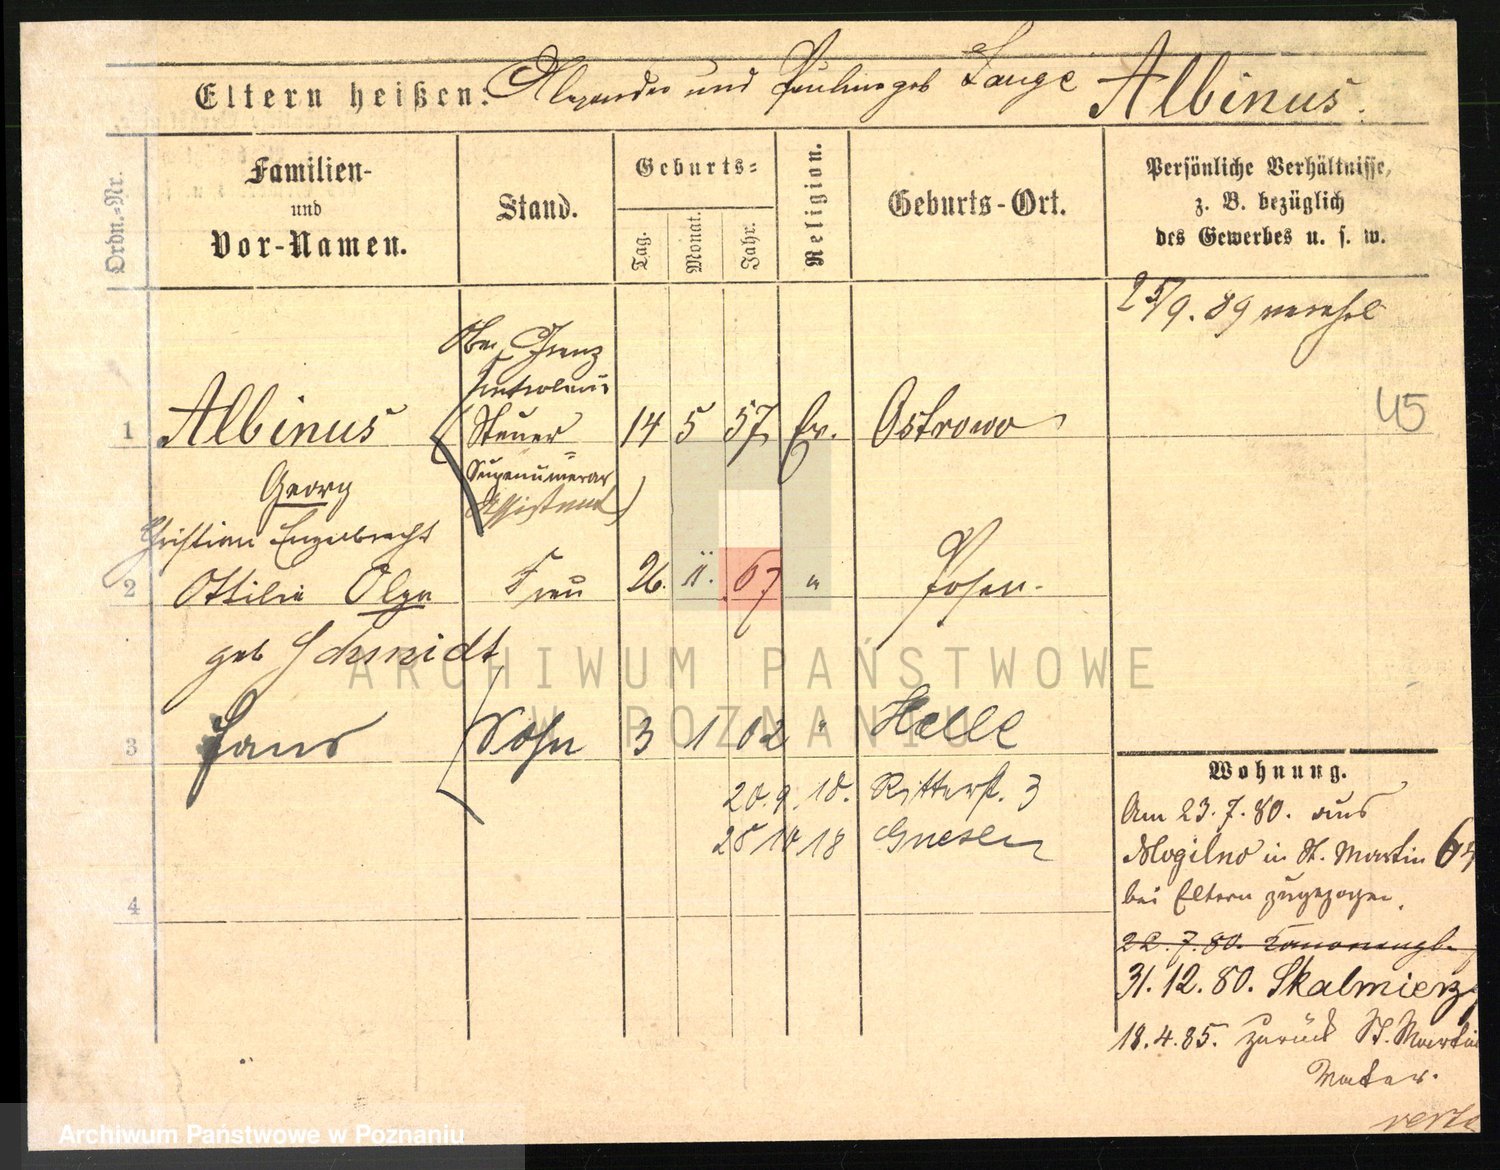 Eltern heißen: Alexander und Pauline geb Lange Albinus.
Ordn.-Nr.
Familien-
und
Vor-Namen.
Stand.
Geburts-
Tag.
Monat.
Jahr.
Religion.
Geburts-Ort.
Persönliche Verhältnisse,
z. B. bezüglich
des Gewerbes u. s. w.
25/9. 89 verehel
45
Ober Grenz
Kontroleur
1 Albinus Steuer 14 5 57 Ev. Ostrowo
Georg Supernumerar
Assistent)
Christian Engelbrecht
2 Ottilie Olga Frau 26. 11. 67 " Posen.
geb Schmidt
3 Hans Sohn 3 1 02 " Halle
20. 9. 18. Ritterst. 3
25 10 18 Gnesen
4
Wohnung.
Am 23. 7. 80. aus
Mogilno in St. Martin 64
bei Eltern zugezogen.
22. 7. 80. Kanonenpl.
31. 12. 80. Skalmierz
18. 4. 85. zurück St. Martin
Vater.
ARCHIWUM PAŃSTWOWE
W POZNANIU
Archiwum Państwowe w Poznaniu